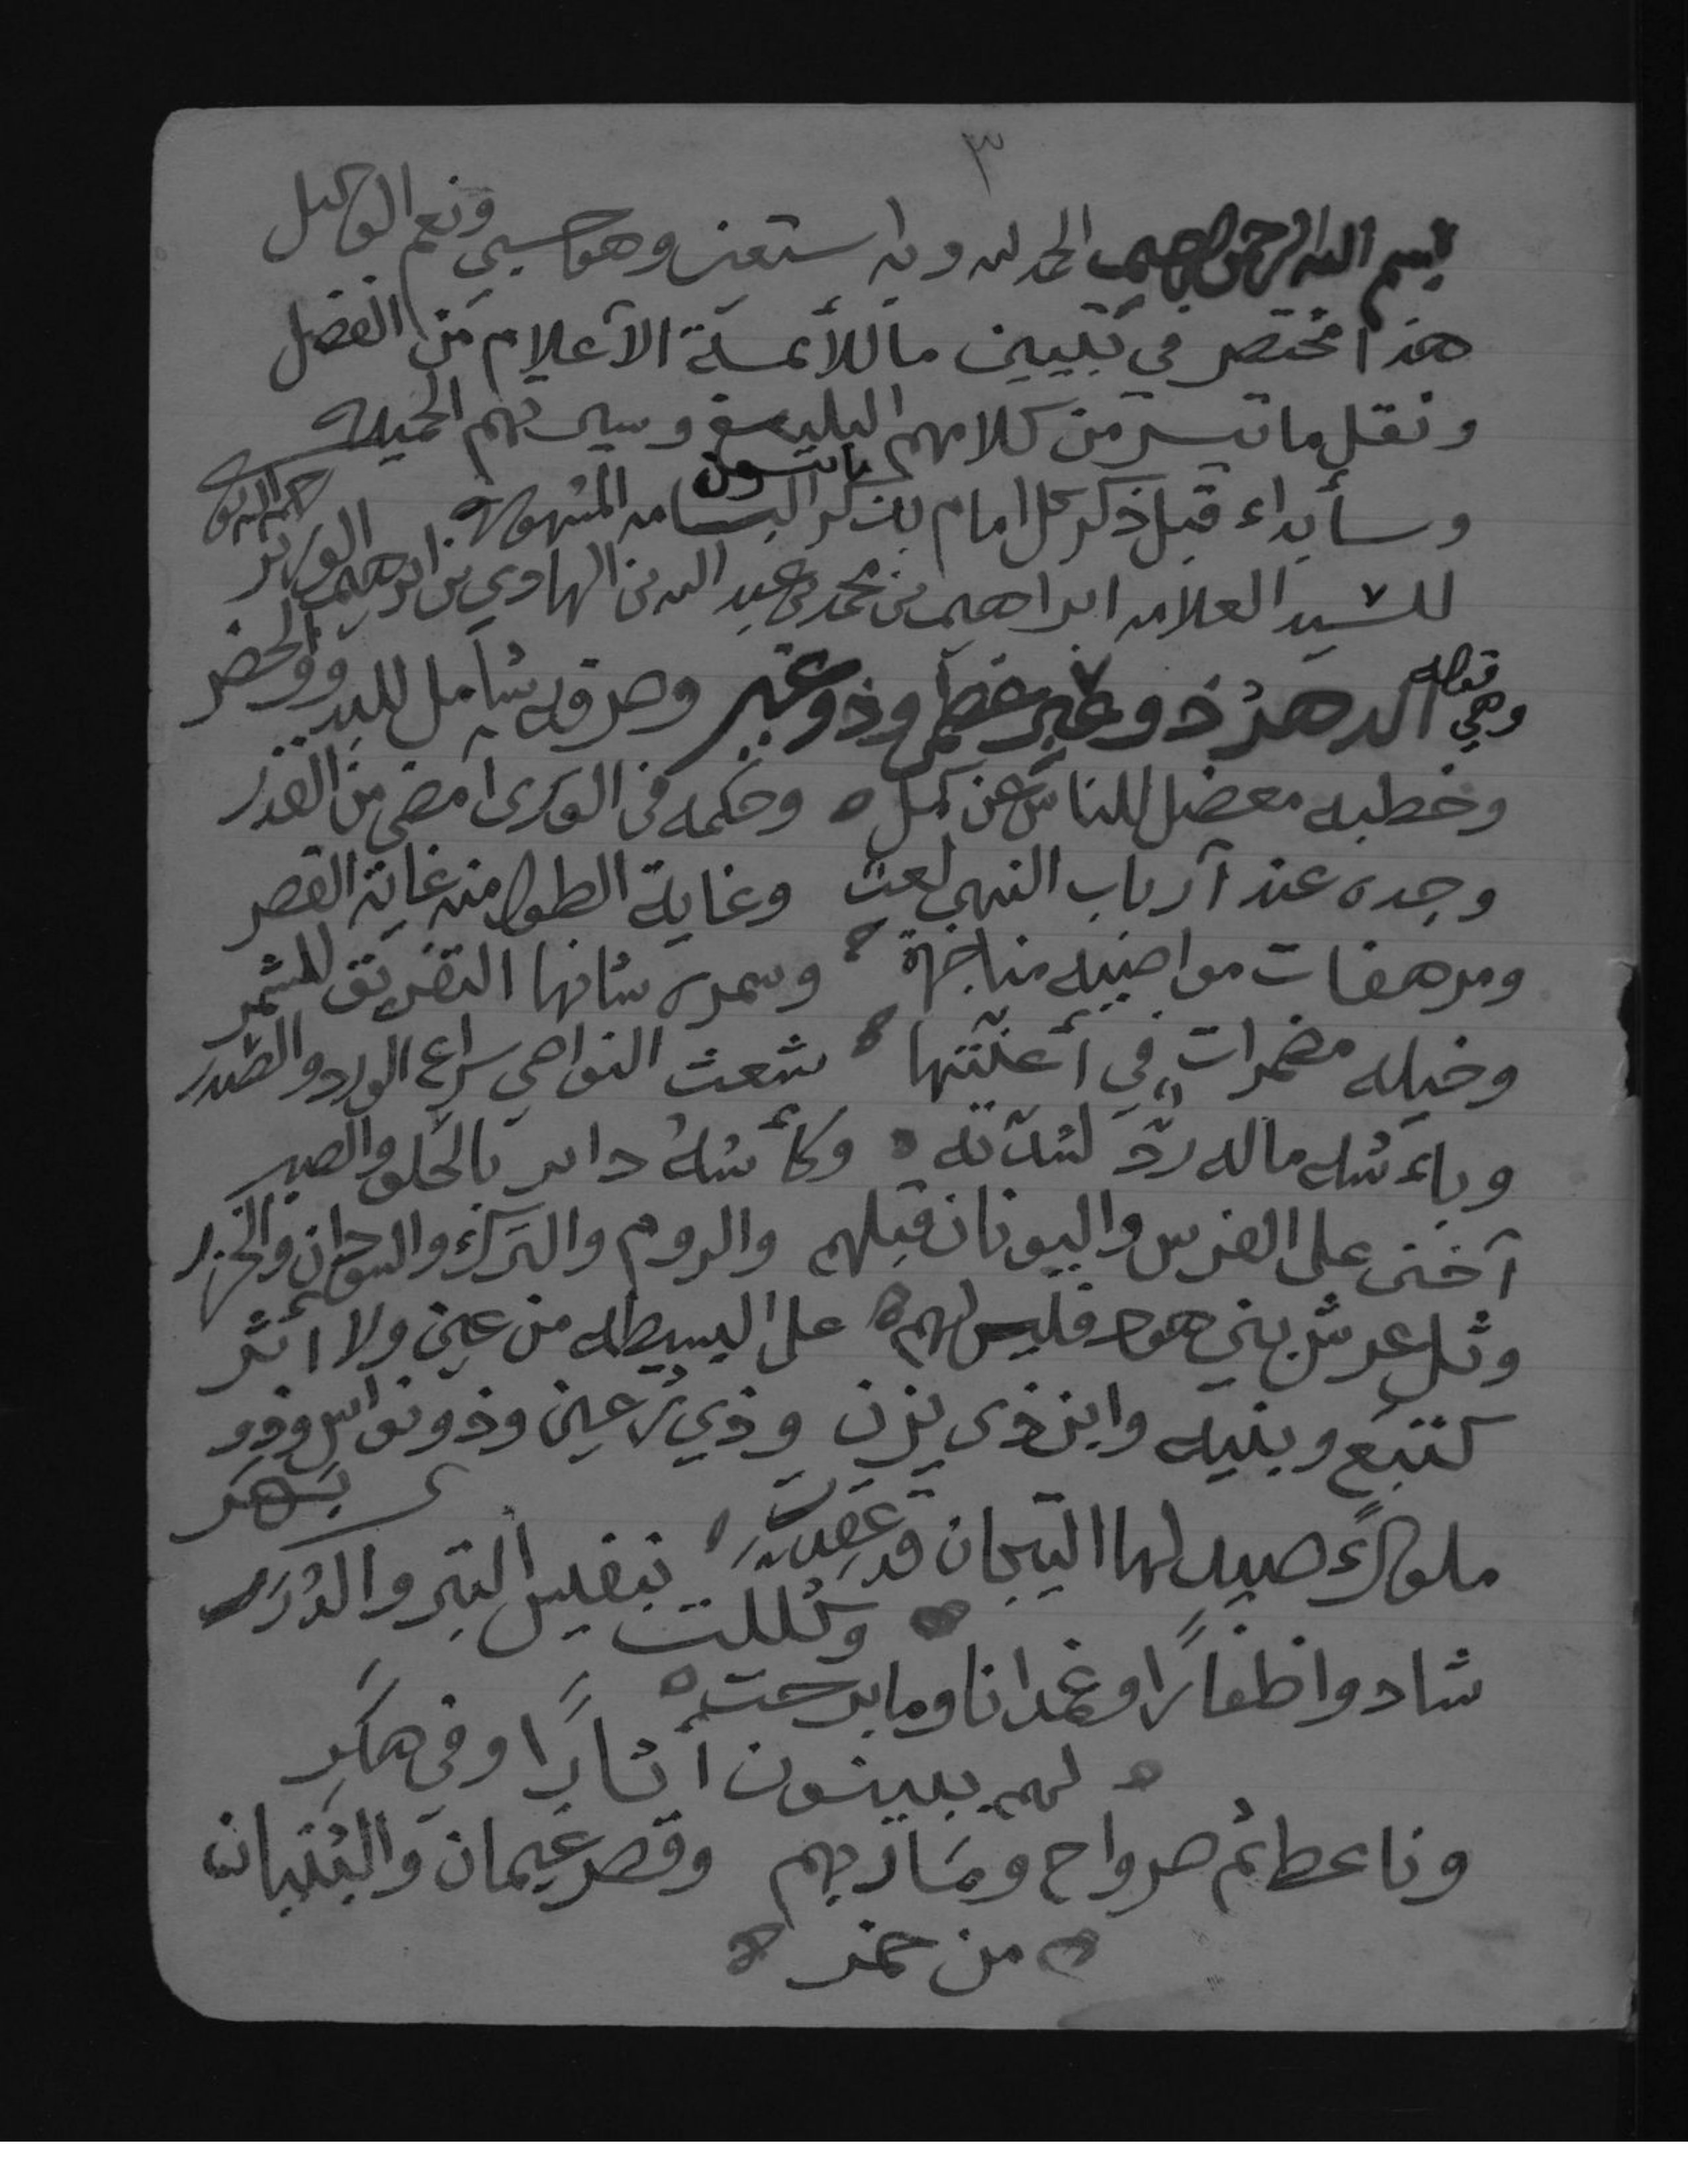 ٣
بسم الله الرحمن الرحيم الحمد لله وبه استعين وهو حسبي ونعم الوكيل
هذا مختصر في تبيين ما للأئمة الأعلام من الفضل
ونقل ما تيسر من كلامهم البليغ وسيرتهم الجميله
وسأبداء قبل ذكر كل امام بذكر البسامه المشهوره
للسيد العلامه ابراهيم بن محمد بن عبد الله بن الهادي بن ابراهيم الوزير
وهي قوله الدهر ذو عبر عظمى وذو غير وصرفه شامل للبدو والحضر
وخطبه معضل للناس عن كمل وحكمه في الورى امضى من القدر
وجده عند أرباب النهى لعب وغاية الطول منه غاية القصر
ومرهفات مواضيه مناجزة وسمره شانها التفريق للشمر
وخيله مضمرات في أعنتها شعث النواصي سراع الورد والصدر
وبأسه ماله رد لشدته وكأسه دائر بالحلو والصبر
أخنى على الفرس واليونان قبلهم والروم والترك والسودان والخزر
وثل عرش بني هود فليس لهم على البسيطه من عين ولا اثر
كتبع وبنيه وابن ذي يزن وذي رعين وذو نواس وذو
يهر
ملوك صيد لها التيجان قد عقدت بنفيس التبر والدرر
وكللت
شادوا ظفارا وغمدانا وما برحت
لهم ببينون اثارا وفي هكر
وناعط ثم صرواح ومأربهم وقصر غيمان والبنيان
من خمر